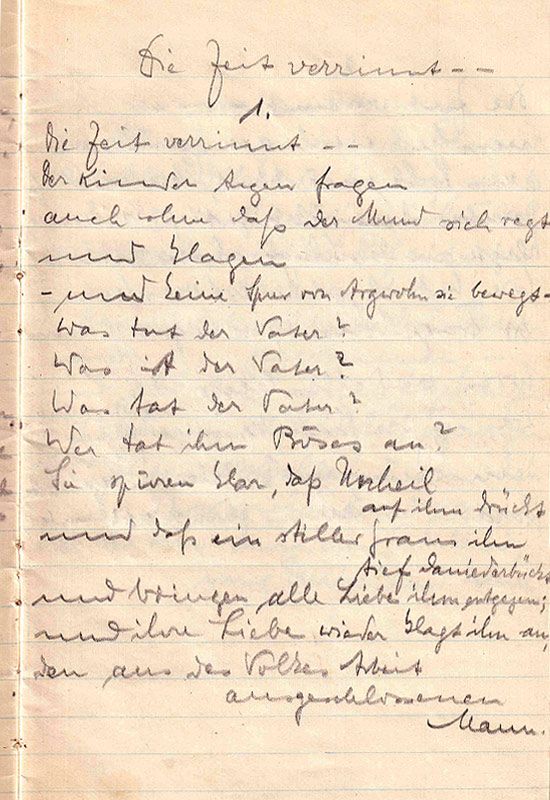 Die Zeit verrinnt --
1.
Die Zeit verrinnt --
Der Kinder Augen fragen
auch ohne daß der Mund sich regt
und klagen
- und keine Spur von Argwohn sie bewegt -
Was tut der Vater?
Was ist der Vater?
Was tat der Vater?
Wer tat ihm Böses an?
Sie spüren klar, daß Unheil
auf ihm drückt
und daß ein stiller Gram ihn
tief daniederbückt
und bringen alle Liebe ihm entgegen;
und ihre Liebe wieder klagt ihn an,
den aus des Volkes Arbeit
ausgeschlossenen
Mann.